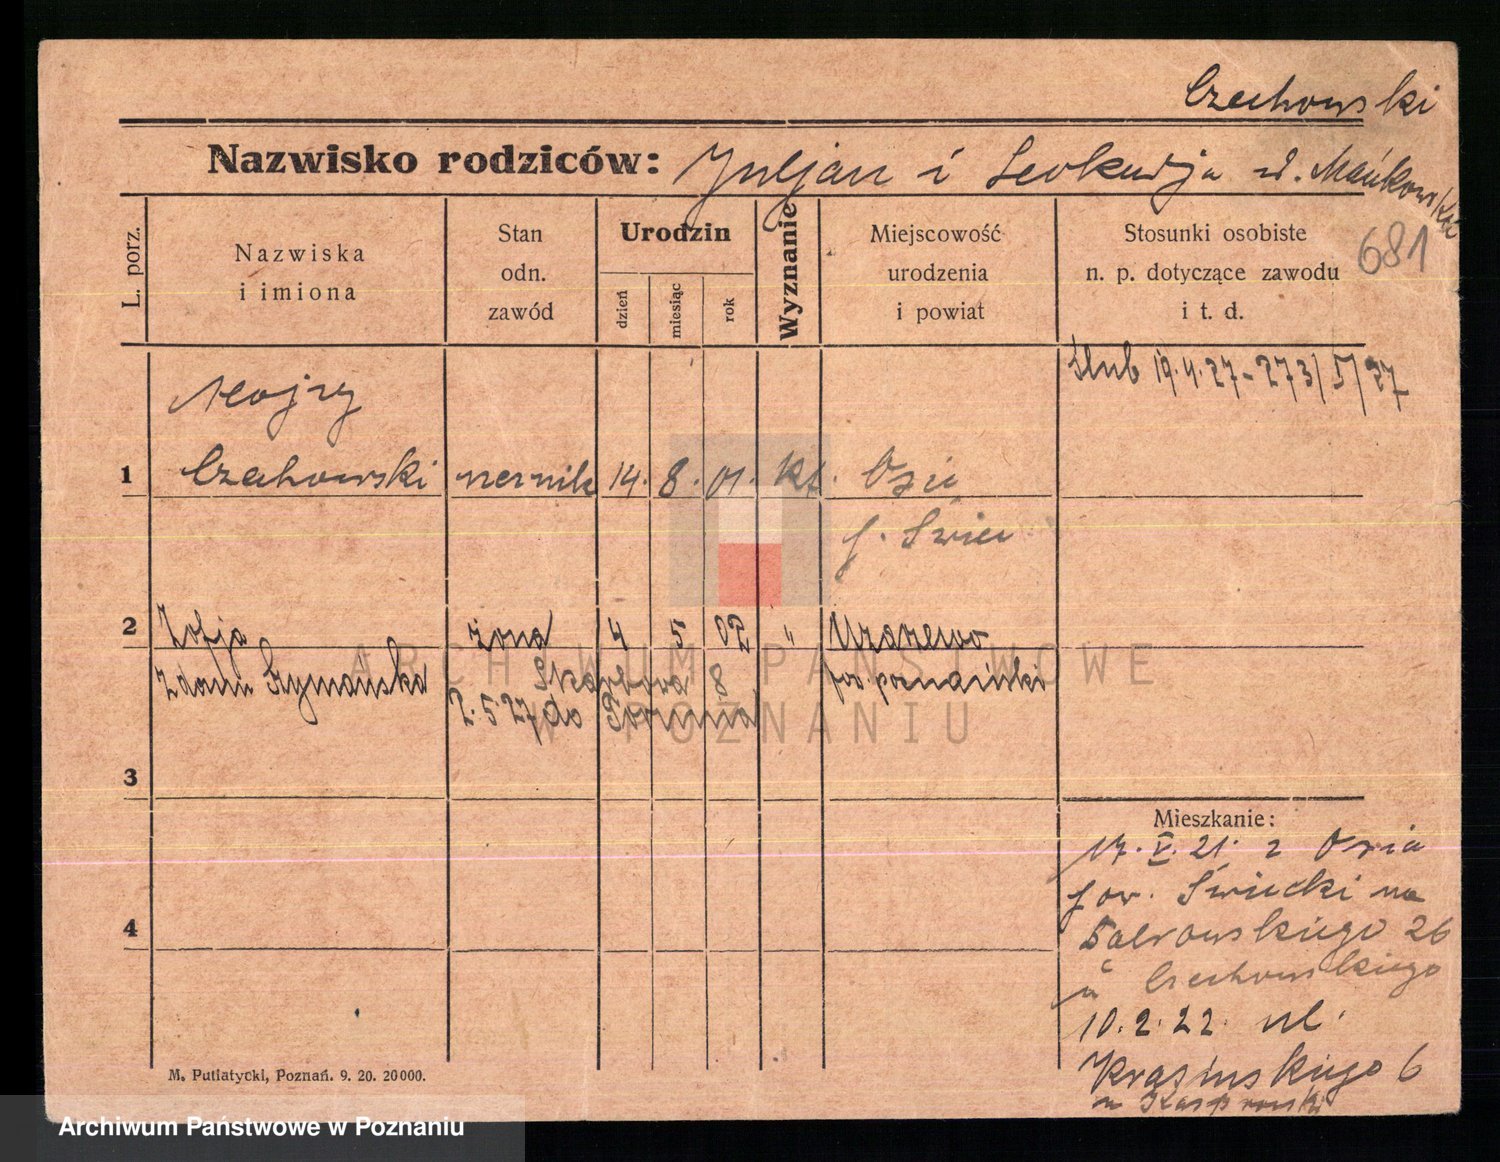 Czechowski
Nazwisko rodziców: Juljan i Leokadja z d. Mańkowska
681
L. porz.
Nazwiska
i imiona
Stan
odn.
zawód
Urodzin
dzień
miesiąc
rok
Wyznanie
Miejscowość
urodzenia
i powiat
Stosunki osobiste
n. p. dotyczące zawodu
i t. d.
Ślub 19.4.27 - 273/5/27
1
Czechowski
14. 8. 01. kt. Osie
p. Świec
2
Zofja żona 4 5 02 " Uzarzewo
z domu Szymańska Skarbowa 8 pow. poznański
2.5.27 do Torunia
3
Mieszkanie:
17.V.21. z Osia
pow. Świecki na
26
u Czechowskiego
4
10.2.22. ul.
Krasińskiego 6
M. Putiatycki, Poznań. 9. 20. 20000.
ARCHIWUM PAŃSTWOWE
W POZNANIU
Archiwum Państwowe w Poznaniu